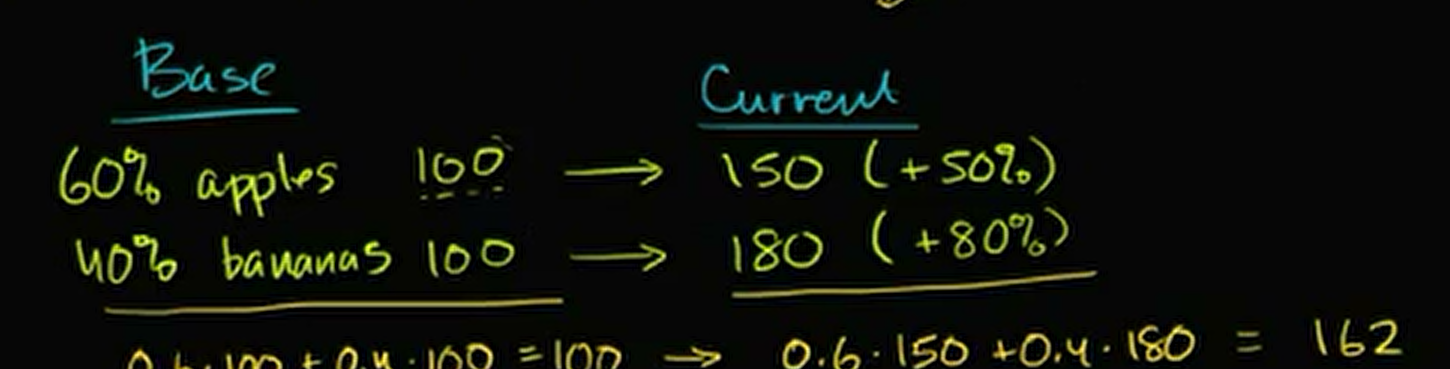 Base
Current
60% apples 100 → 150 (+50%)
40% bananas 100 → 180 (+80%)
0.6·100 + 0.4·100 = 100 → 0.6·150 + 0.4·180 = 162